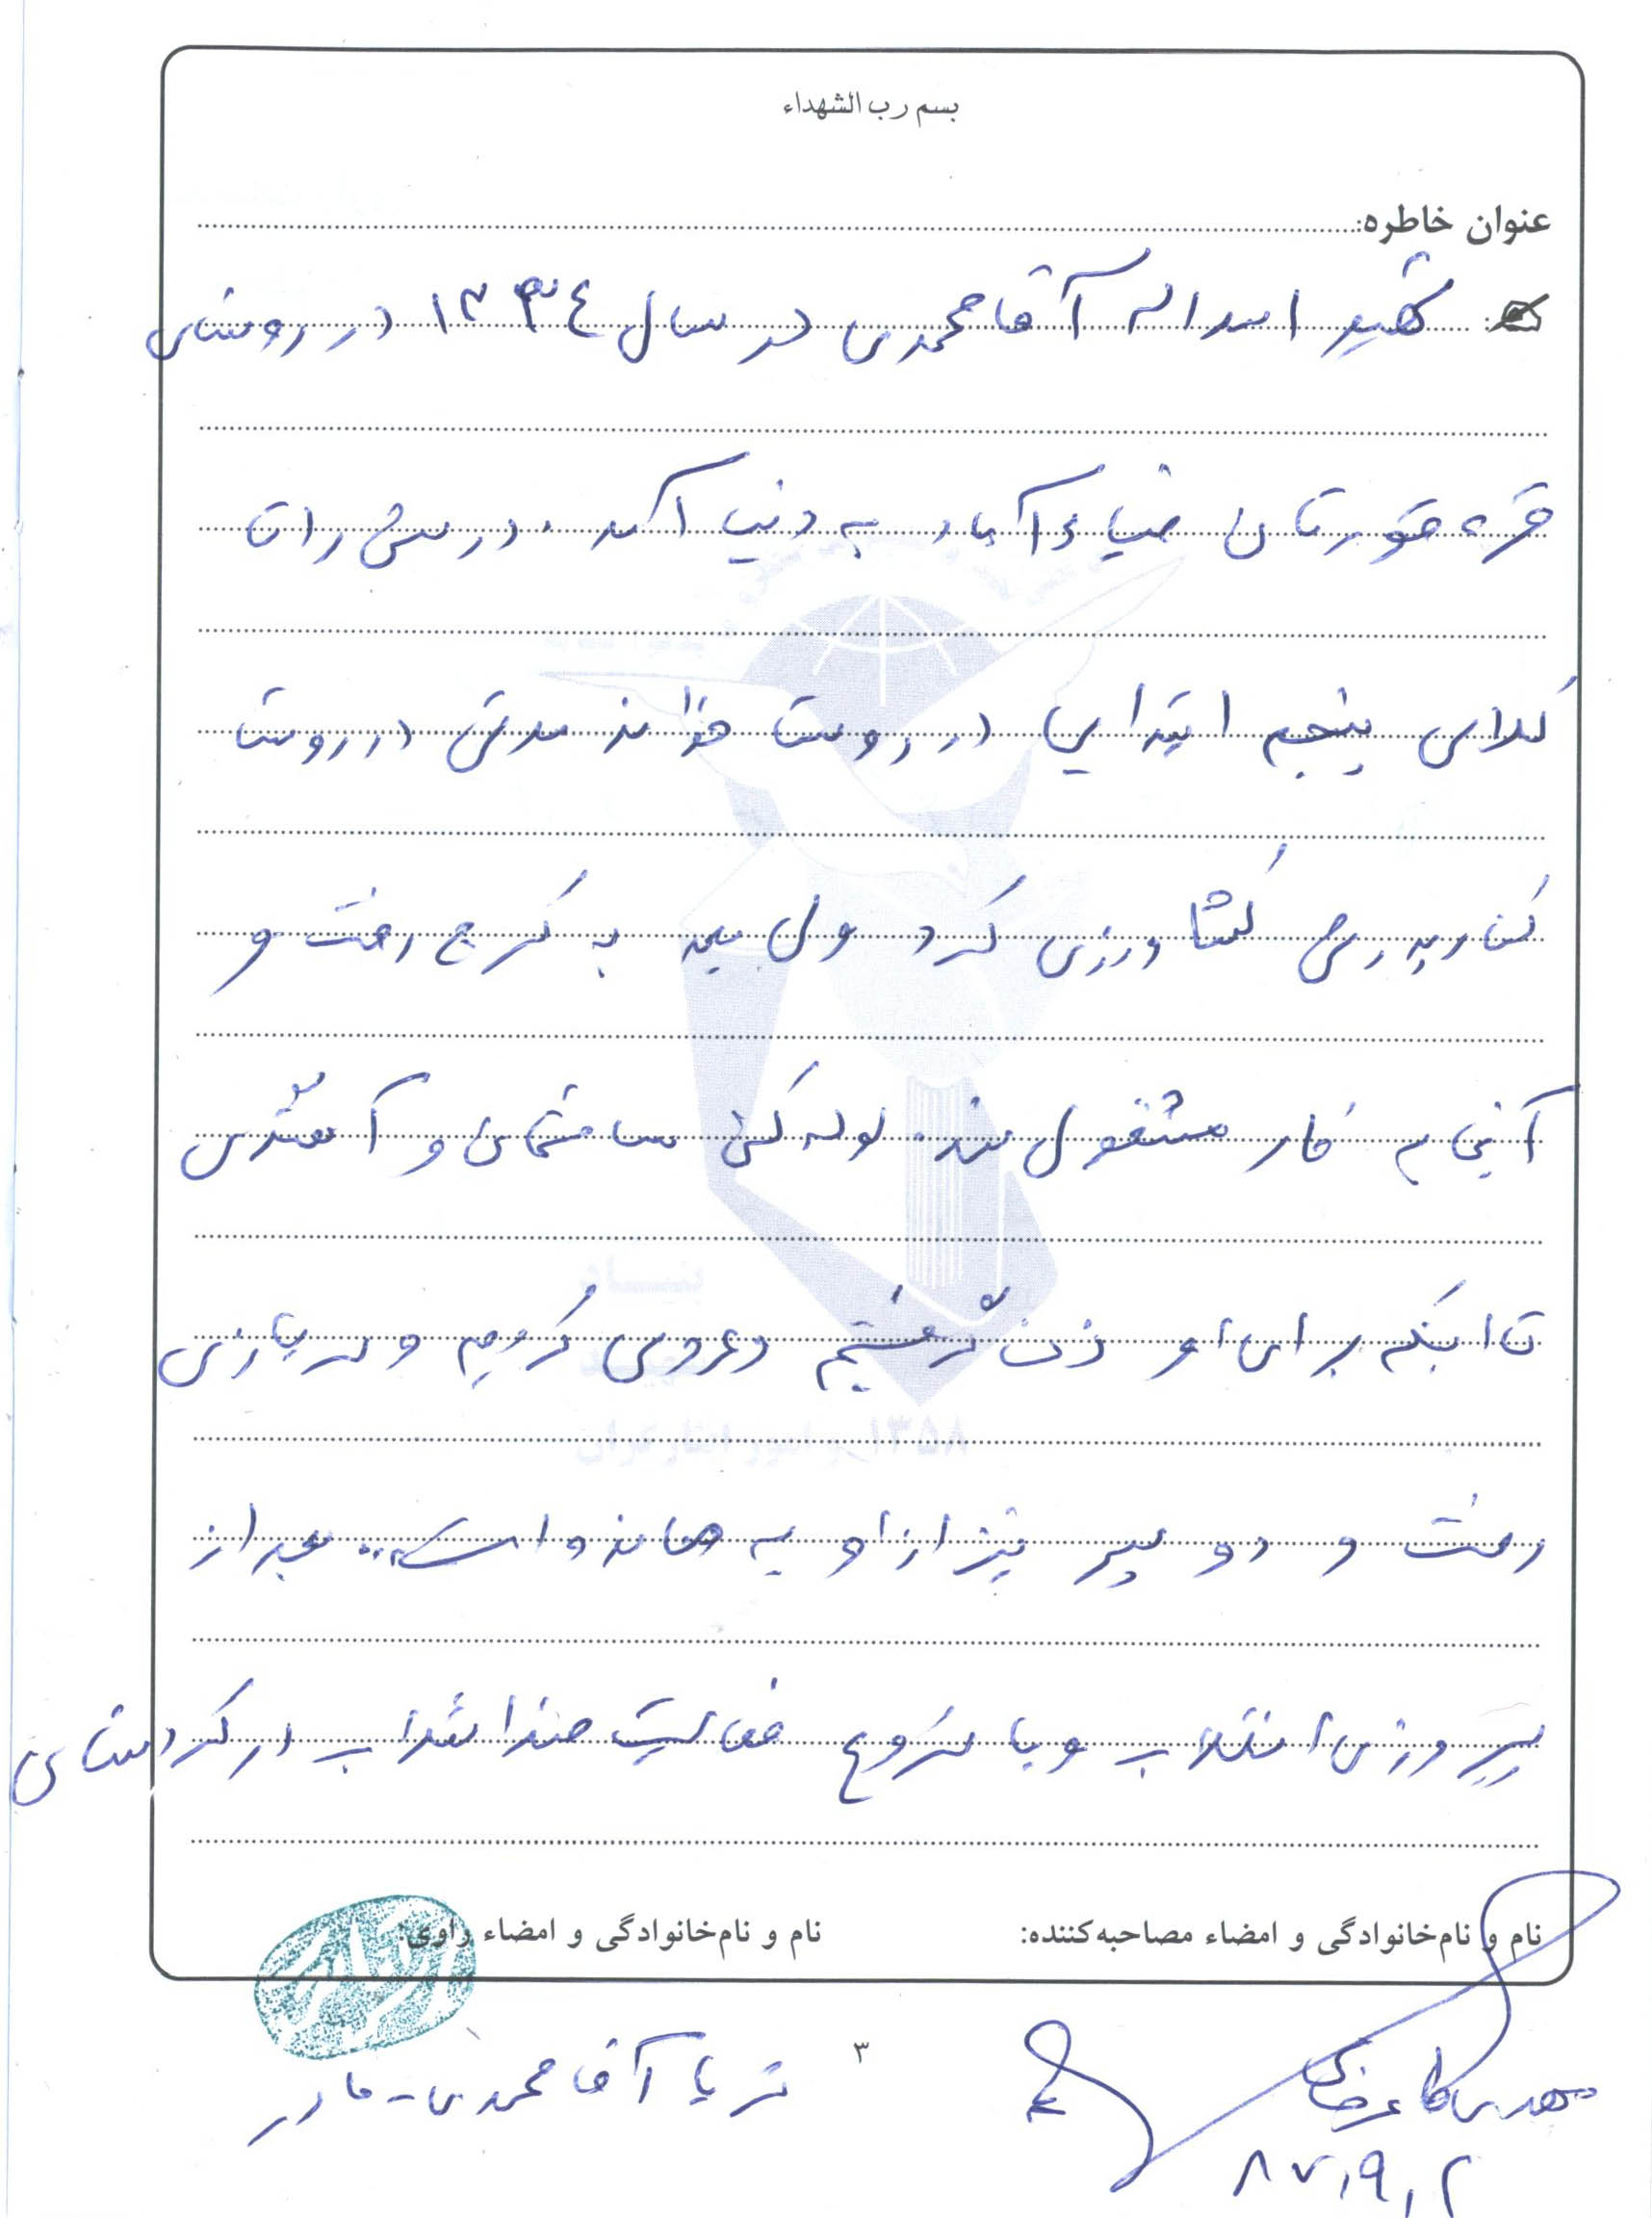 بسم رب الشهداء
عنوان خاطره:
شهید اسداله آقامحمدی در سال ۱۳۳۴ در روستای
قره قورتان ضیاءآباد به دنیا آمد. درسش را تا
کلاس پنجم ابتدایی در روستا خواند مدتی در روستا
کنار پدرش کشاورزی کرد ولی بعد به کرج رفت و
آنجا م کار مشغول شد. لوله کشی ساختمان و
تا اینکه برای او زن گرفتیم و عروسی کردیم و سربازی
رفت و دو پسر نیز از او به جا مانده است.. بعد از
پیروزی انقلاب و با شروع فعالیت ضدانقلاب در کردستان
نام و نام‌خانوادگی و امضاء مصاحبه‌کننده:
نام و نام‌خانوادگی و امضاء راوی:
۳
ثریا آقامحمدی - مادر
مهدی
۸۷,۹,۲
بنیاد
شهید
و امور ایثارگران
۱۳۵۸